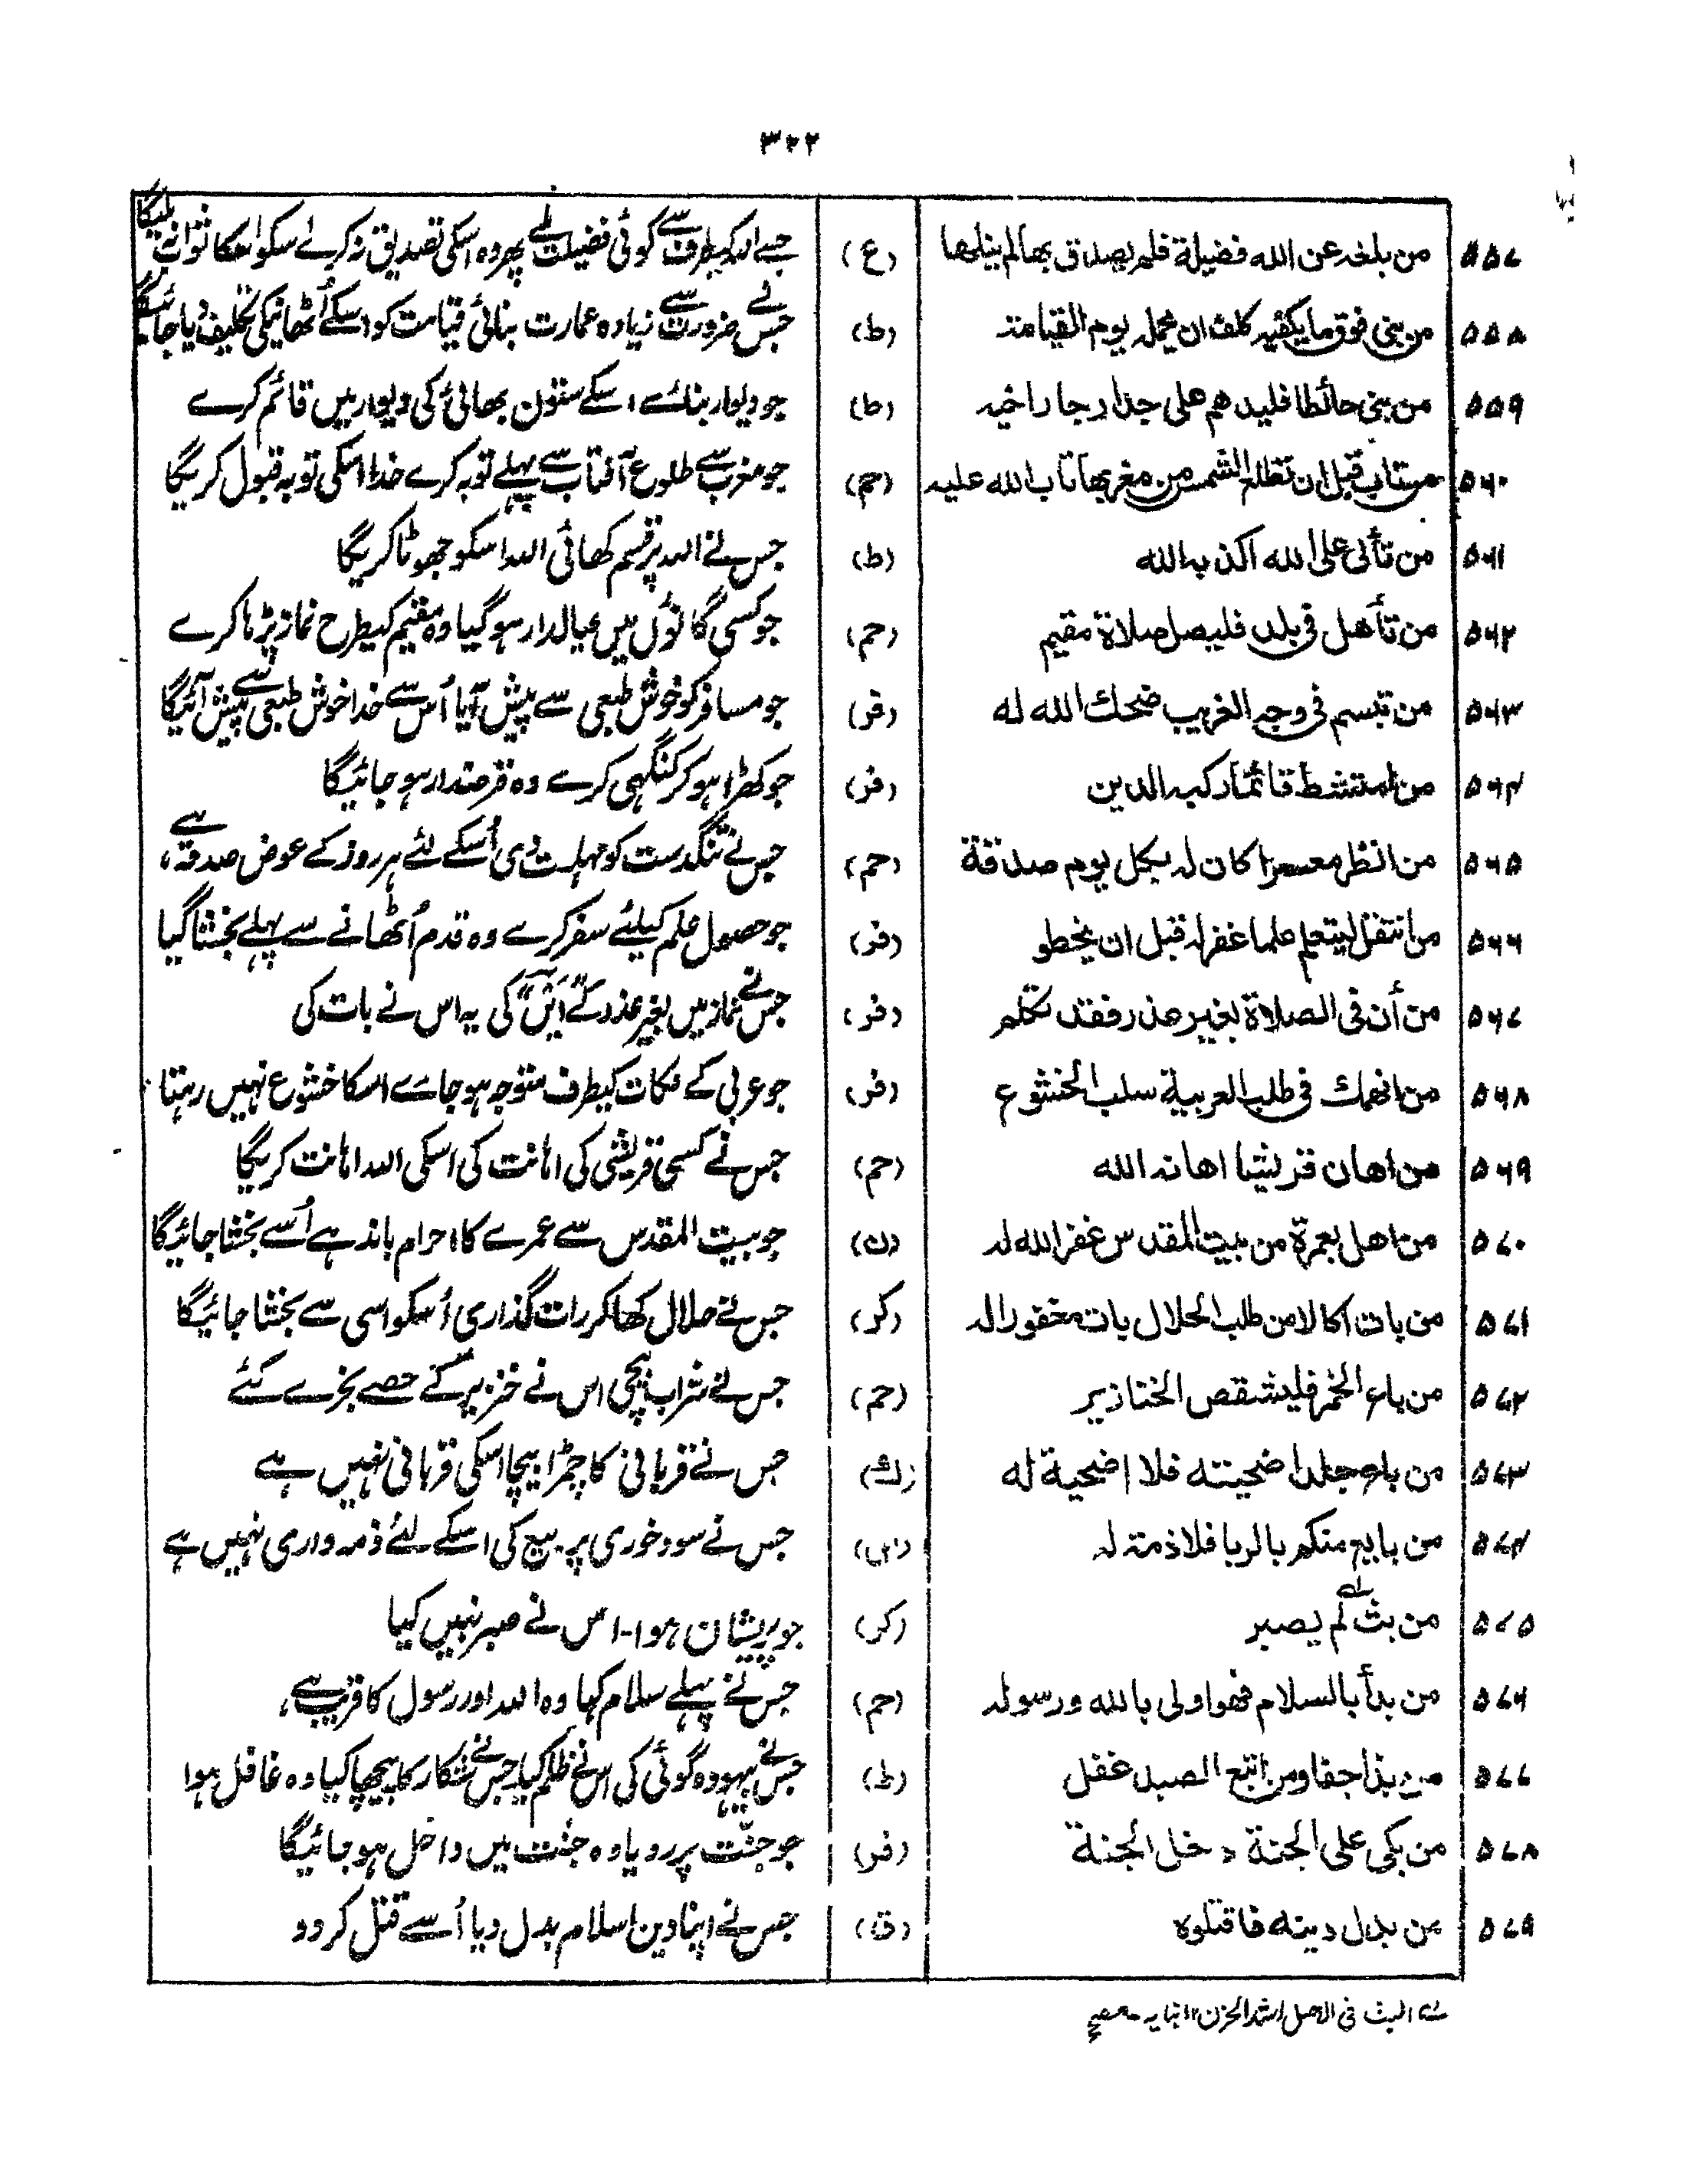 ۳۲۲
۵۵۷ من بلغه عن الله فضيلة فلم يصدق بها لم ينلها (ع) جسے اللہ کیطرف سے کوئی فضیلت ملے پھر وہ اسکی تصدیق نہ کرے اسکو اسکا ثواب نہ ملیگا
۵۵۸ من بنى فوق ما يكفيه كلف ان يحمله يوم القيامة (ط) جس نے ضرورت سے زیادہ عمارت بنائی قیامت کو اسکے اُٹھانیکی تکلیف دیا جائیگا
۵۵۹ من بنى حائطا فليدعم على جدار جاراخيه (ط) جو دیوار بنائے اسکے ستون بھائی کی دیوار میں قائم کرے
۵۶۰ من تاب قبل ان تطلع الشمس من مغربها تاب الله عليه (حم) جو مغرب سے طلوع آفتاب سے پہلے توبہ کرے خدا اسکی توبہ قبول کریگا
۵۶۱ من تألى على الله اكذبه الله (ط) جس نے اللہ پر قسم کھائی اللہ اسکو جھوٹا کریگا
۵۶۲ من تأهل فى بلد فليصل صلاة مقيم (حم) جو کسی گانوٗں میں عیالدار ہو گیا وہ مقیم کیطرح نماز پڑہا کرے
۵۶۳ من تبسم فى وجه الغريب ضحك الله له (فر) جو مسافر کو خوش طبعی سے پیش آیا اُس سے خدا خوش طبعی سے پیش آئیگا
۵۶۴ من امتشط قائما ركبه الدين (فر) جو کھڑا ہو کر کنگہی کرے وہ قرضدار ہو جائیگا
۵۶۵ من انظر معسرا كان له بكل يوم صدقة (حم) جس نے تنگدست کو مہلت دی اُسکے لئے ہر روز کے عوض صدقہ ہے،
۵۶۶ من انتقل ليتعلم علما غفر له قبل ان يخطو (فر) جو حصول علم کیلئے سفر کرے وہ قدم اُٹھانے سے پہلے بخشا گیا
۵۶۷ من أن فى الصلاة بغير عذر فقد تكلم (فر) جس نے نماز میں بغیر عذر کے "اَیں" کی یہ اس نے بات کی
۵۶۸ من انهمك فى طلب العربية سلب الخشوع (فر) جو عربی کے نکات کیطرف متوجہ ہو جاۓ اسکا خشوع نہیں رہتا
۵۶۹ من اهان قريشا اهانه الله (حم) جس نے کسی قریشی کی اہانت کی اسکی اللہ اہانت کریگا
۵۷۰ من اهل بعمرة من بيت المقدس غفر الله له (ن) جو بیت المقدس سے عمرے کا احرام باندہے اُسے بخشا جائیگا
۵۷۱ من بات اكالا من طلب الحلال بات مغفورا له (کر) جس نے حلال کھا کر رات گذاری اُسکو اسی سے بخشا جائیگا
۵۷۲ من باع الخمر فليشقص الخنازير (حم) جس نے شراب بیچی اس نے خنزیر کے حصے بخرے کئے
۵۷۳ من باع جلد اضحيته فلا اضحية له (ك) جس نے قربانی کا چمڑا بیچا اسکی قربانی نہیں ہے
۵۷۴ من بايع منكم بالربا فلا ذمة له جس نے سود خوری پر بیع کی اسکے لئے ذمہ داری نہیں ہے
۵۷۵ من بث لم يصبر (کر) جو پریشان ہوا۔ اس نے صبر نہیں کیا
۵۷۶ من بدأ بالسلام فهو اولى بالله ورسوله (حم) جس نے پہلے سلام کہا وہ اللہ اور رسول کا قریب ہے،
۵۷۷ من بذا جفا ومن اتبع الصيد غفل (ط) جس نے بیہودہ گوئی کی اس نے ظلم کیا۔ جس نے شکار کا پیچھا کیا وہ غافل ہوا
۵۷۸ من بكى على الجنة دخل الجنة (فر) جو جنّت پر رویا وہ جنّت میں داخل ہو جائیگا
۵۷۹ من بدل دينه فاقتلوه (ق) جس نے اپنا دین اسلام بدل دیا اُسے قتل کر دو
البث فى الاصل اشد الحزن ۱۲ نہایہ۔ مصحح